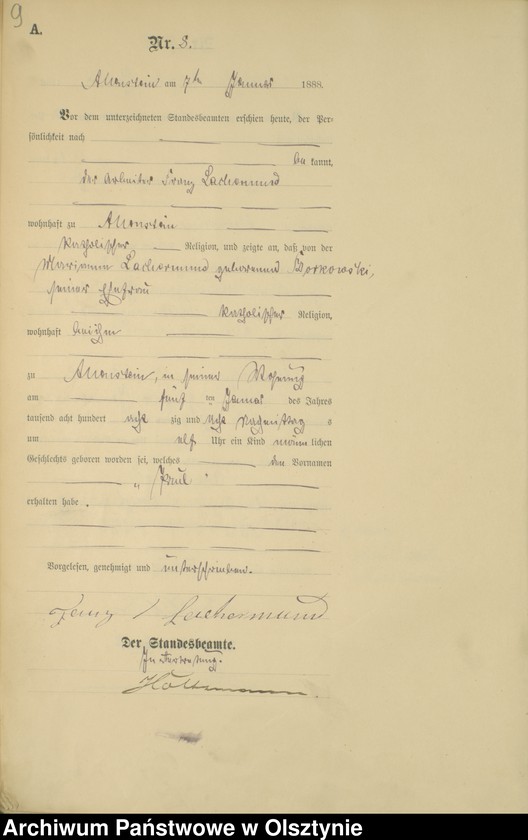 9
A.
Nr. 8.
Allenstein am 7ten Januar 1888.
Vor dem unterzeichneten Standesbeamten erschien heute, der Per-
sönlichkeit nach
be kannt,
der Arbeiter Franz Lachermund
wohnhaft zu Allenstein
katholischer Religion, und zeigte an, daß von der
Marianna Lachermund geborenen Borkowski,
seiner Ehefrau
katholischer Religion,
wohnhaft bei ihm
zu Allenstein, in seiner Wohnung
am fünf ten Januar des Jahres
tausend acht hundert acht zig und acht Nachmittag s
um elf Uhr ein Kind männ lichen
Geschlechts geboren worden sei, welches den Vornamen
„Paul"
erhalten habe.
Vorgelesen, genehmigt und unterschrieben.
Franz Lachermund
Der Standesbeamte.
In Vertretung.
Archiwum Państwowe w Olsztynie